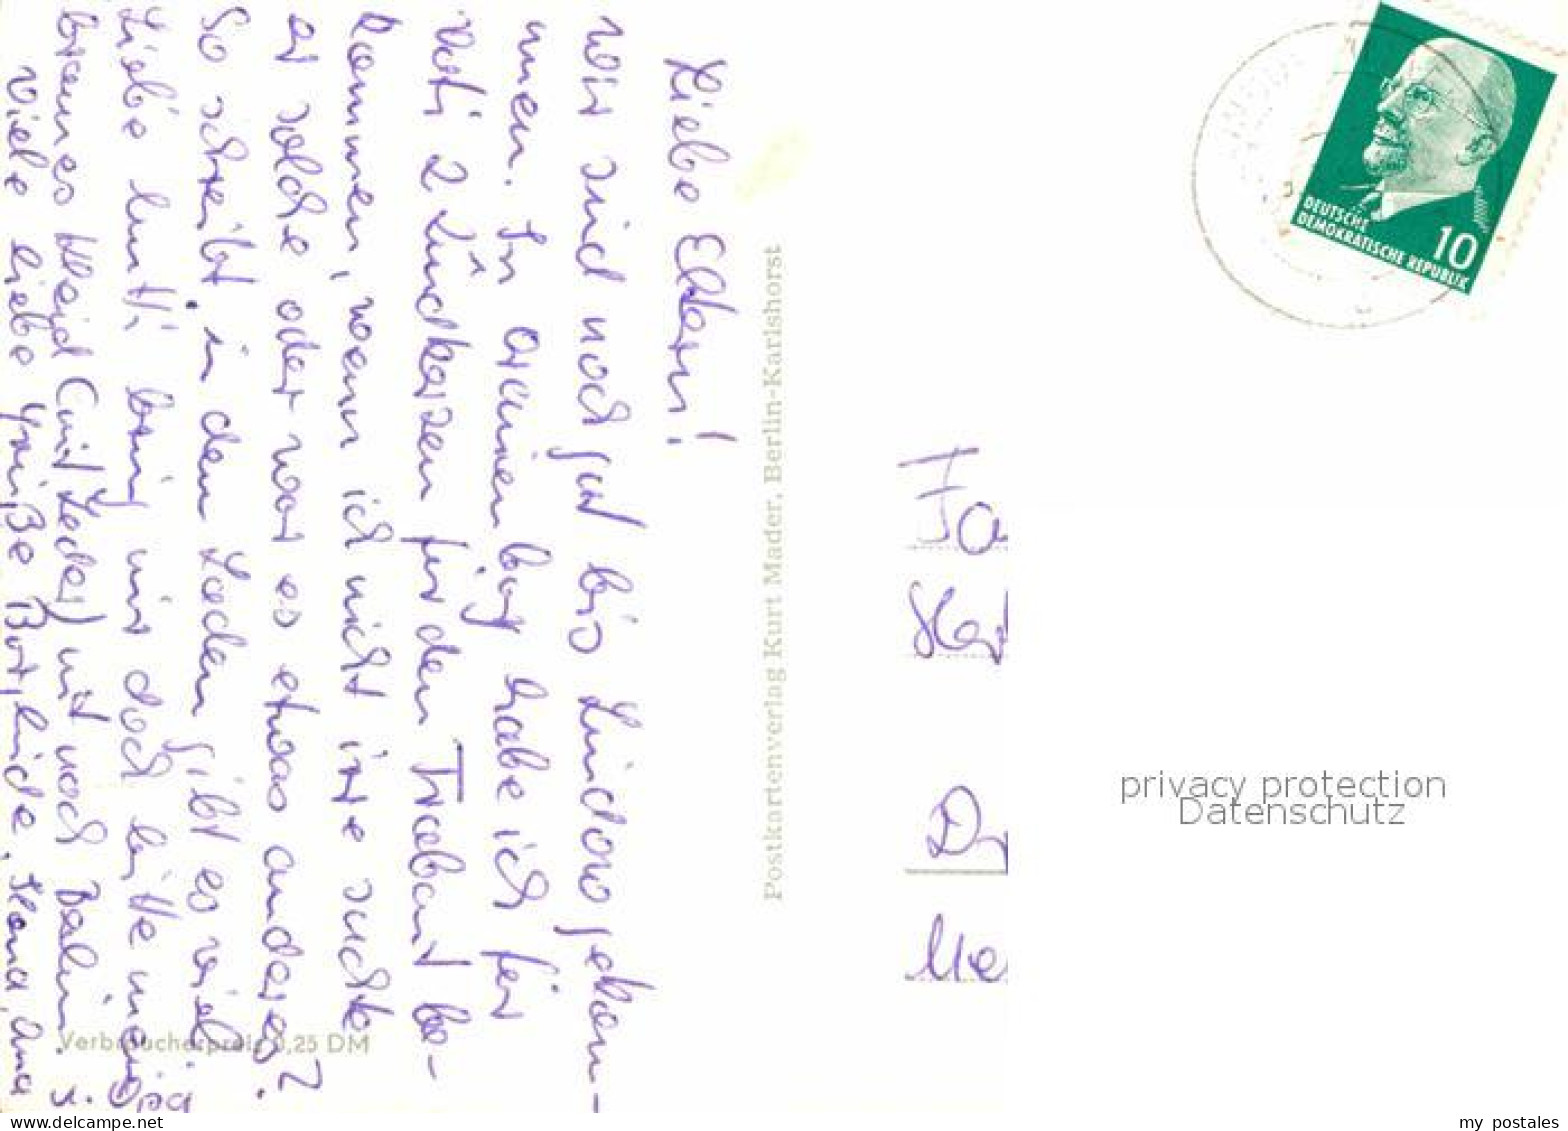 Liebe Eltern!
Wir sind noch gut bis Lindow gekom-
men. In Oranienbg habe ich für
Vati 2 Zündkerzen für den Trabant be-
kommen, wenn ich nicht irre suchte
er solche oder war es etwas anderes?
So schreibt, in dem Laden gibt es viel
Liebe Mutti bring mir doch bitte mein
braunes Kleid (mit Leder) mit nach Berlin.
Viele liebe Grüße
Postkartenverlag Kurt Mader, Berlin-Karlshorst
Verbraucherpreis 0,25 DM
DEUTSCHE
DEMOKRATISCHE REPUBLIK
10
privacy protection
Datenschutz
delcampe.net
my_postales